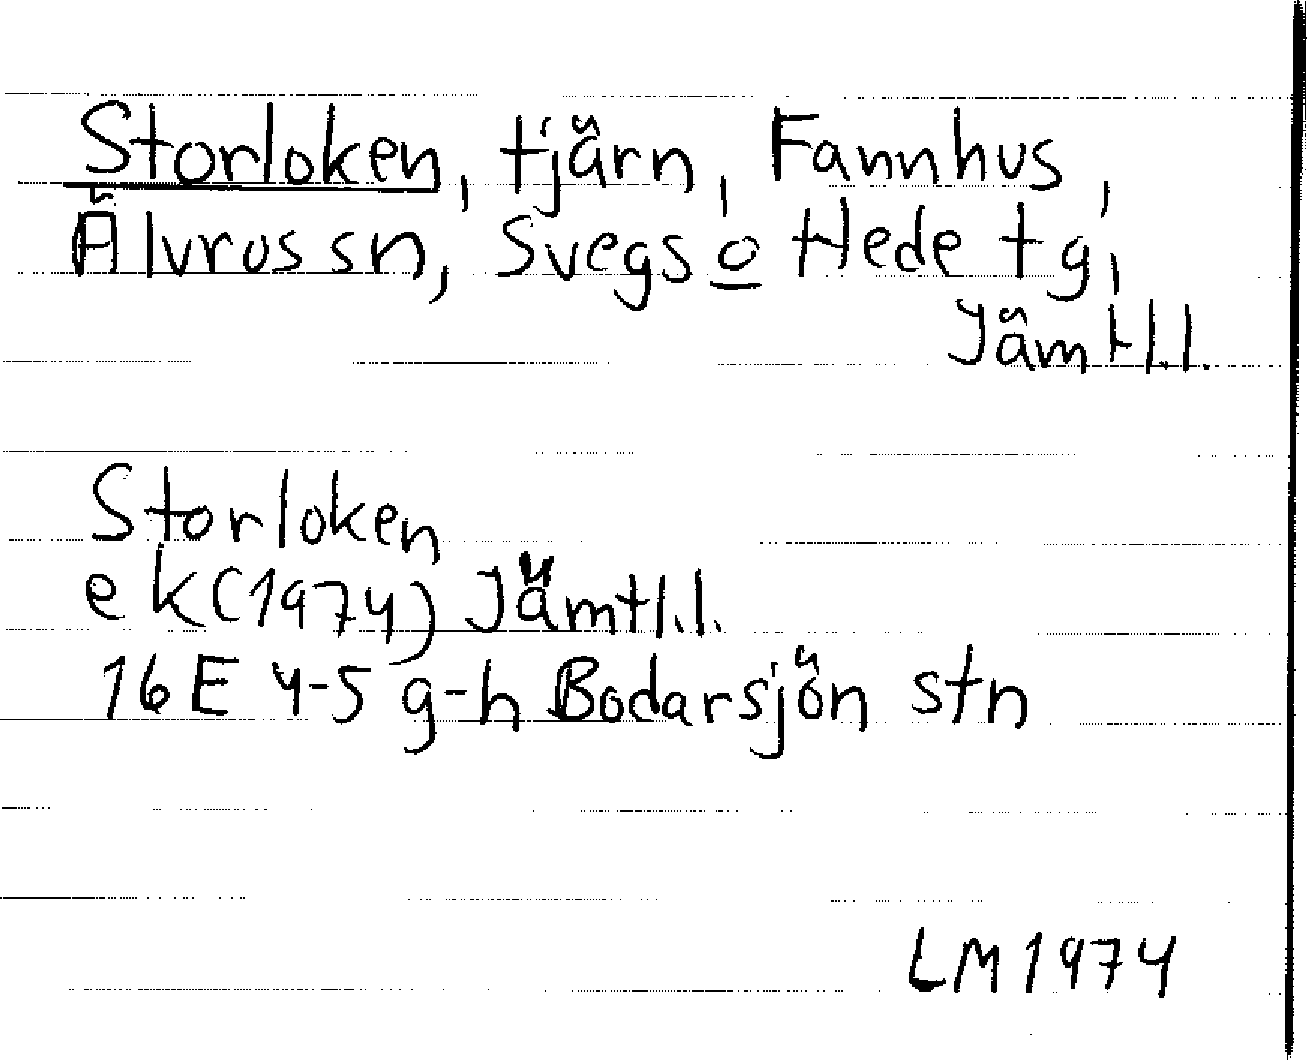 Storloken, tjärn, Fannhus,
Älvros sn, Svegs o Hede tg,
Jämtl.l.
Storloken
e k (1974) Jämtl.l.
16 E 4-5 g-h Bodarsjön stn
LM 1974